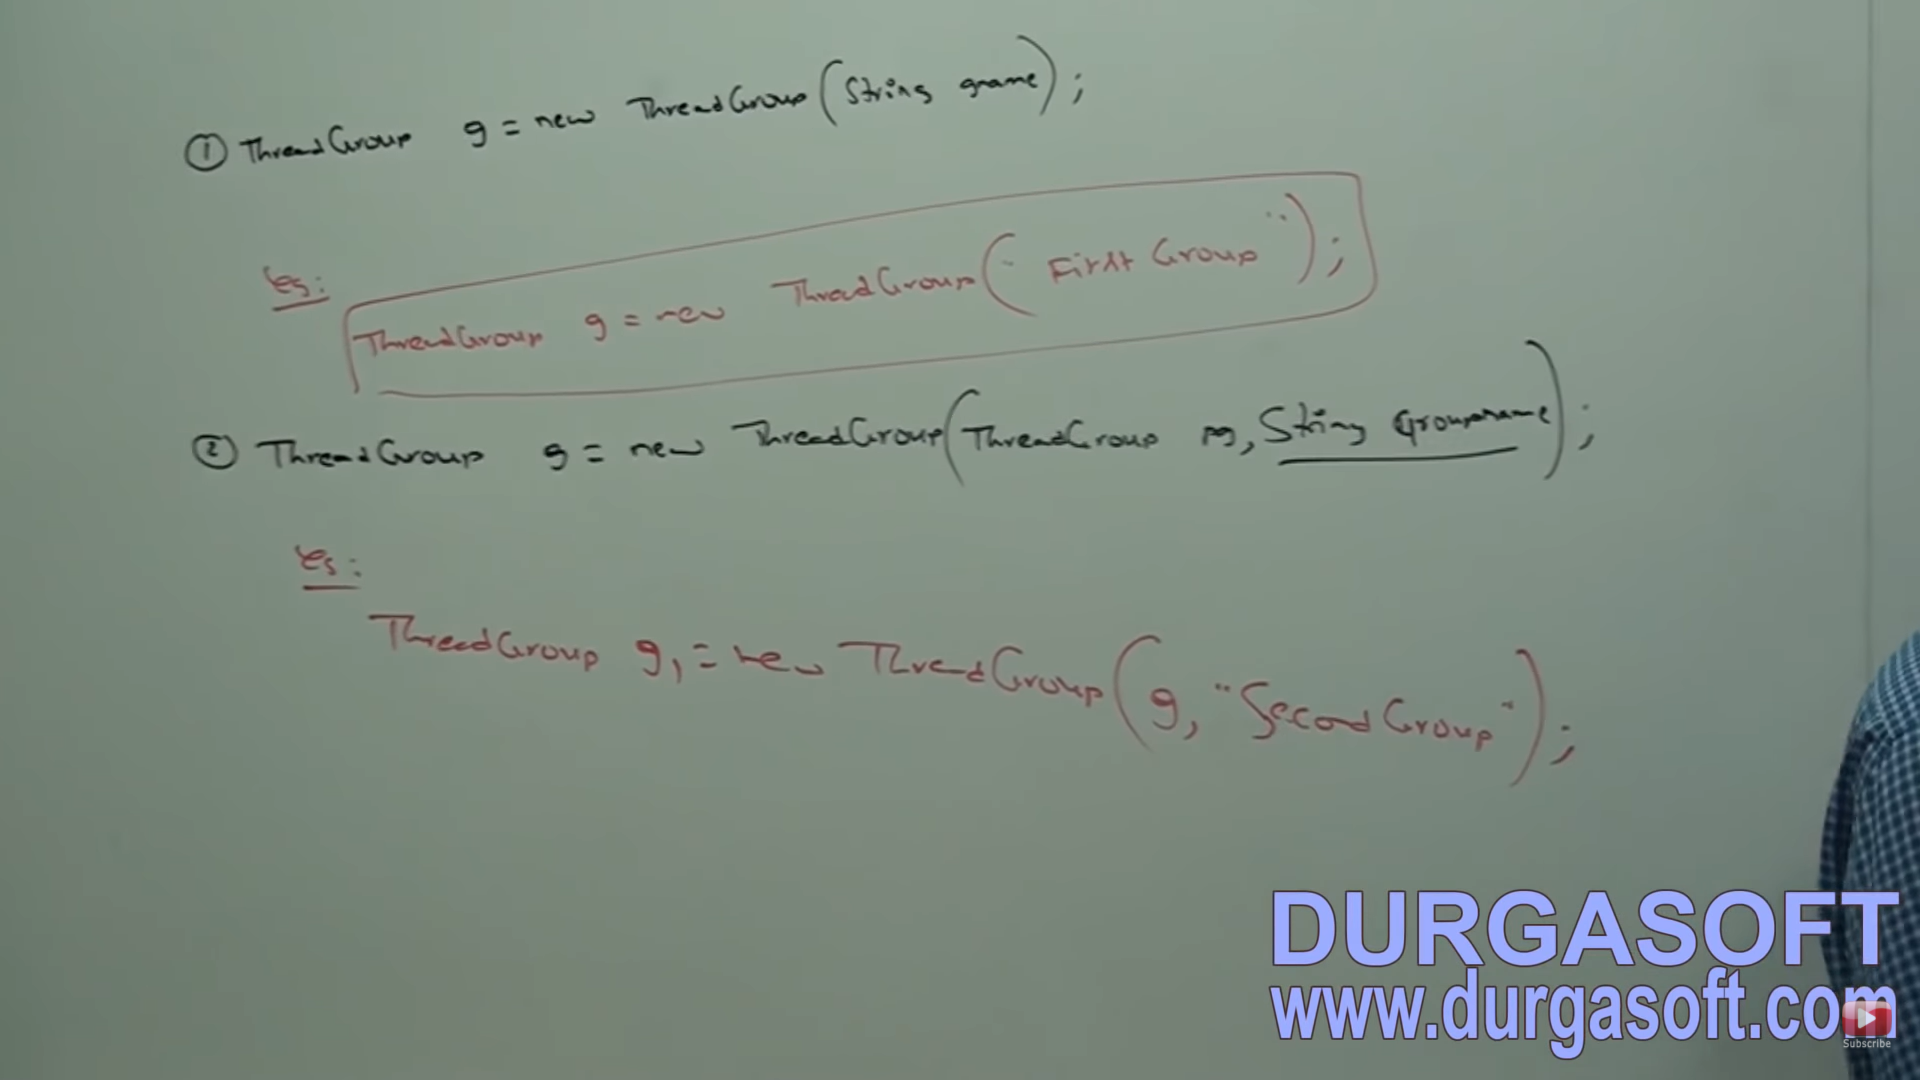 ① ThreadGroup g = new ThreadGroup(String gname);
eg:
ThreadGroup g = new ThreadGroup("First Group");
② ThreadGroup g = new ThreadGroup(ThreadGroup pg, String groupname);
eg:
ThreadGroup g1 = new ThreadGroup(g, "Second Group");
DURGASOFT
www.durgasoft.com
Subscribe